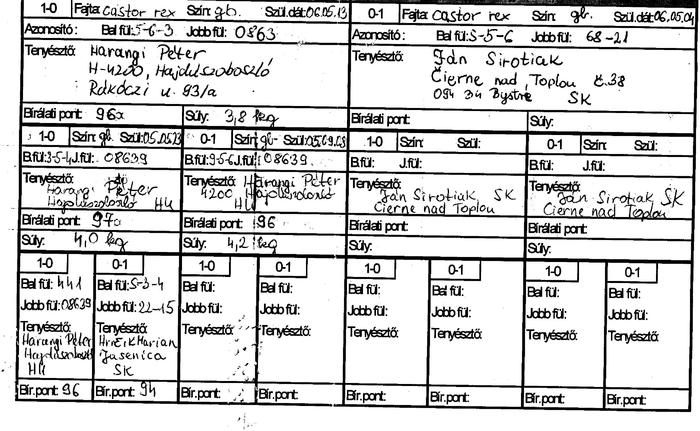 1-0 Fajta: Castor rex Szín: gb. Szül.dát: 06.05.13
0-1 Fajta: Castor rex Szín: gb. Szül.dát: 06.05.04
Azonosító: Bal fül: 5-6-3 Jobb fül: 0863
Azonosító: Bal fül: S-5-6 Jobb fül: 68-21
Tenyésztő: Harangi Péter
H-4200, Hajdúszoboszló
Rákóczi u. 93/a
Tenyésztő: Ján Sirotiak
Čierne nad Toplou č.38
094 34 Bystré SK
Bírálati pont: 96 Súly: 3,8 kg
Bírálati pont: Súly:
1-0 Szín: gb. Szül:
B.fül: 3-5-4 J.fül: 08639
Tenyésztő: Harangi Péter
HU
Bírálati pont: 97
Súly: 4,0 kg
0-1 Szín: gb. Szül:
B.fül: 9-5-6 J.fül: 08639
Tenyésztő: Harangi Péter
4200
HU
Bírálati pont: 96
Súly: 4,2 kg
1-0 Szín: Szül:
B.fül: J.fül:
Tenyésztő:
Ján Sirotiak SK
Čierne nad Toplou
Bírálati pont:
Súly:
0-1 Szín: Szül:
B.fül: J.fül:
Tenyésztő:
Ján Sirotiak SK
Čierne nad Toplou
Bírálati pont:
Súly:
1-0
Bal fül: 441
Jobb fül: 08639
Tenyésztő:
Harangi Péter
HU
Bír.pont: 96
0-1
Bal fül: S-3-4
Jobb fül: 22-15
Tenyésztő:
Marian
Jasenica
SK
Bír.pont: 94
1-0
Bal fül:
Jobb fül:
Tenyésztő:
Bír.pont:
0-1
Bal fül:
Jobb fül:
Tenyésztő:
Bír.pont:
1-0
Bal fül:
Jobb fül:
Tenyésztő:
Bír.pont:
0-1
Bal fül:
Jobb fül:
Tenyésztő:
Bír.pont:
1-0
Bal fül:
Jobb fül:
Tenyésztő:
Bír.pont:
0-1
Bal fül:
Jobb fül:
Tenyésztő:
Bír.pont: